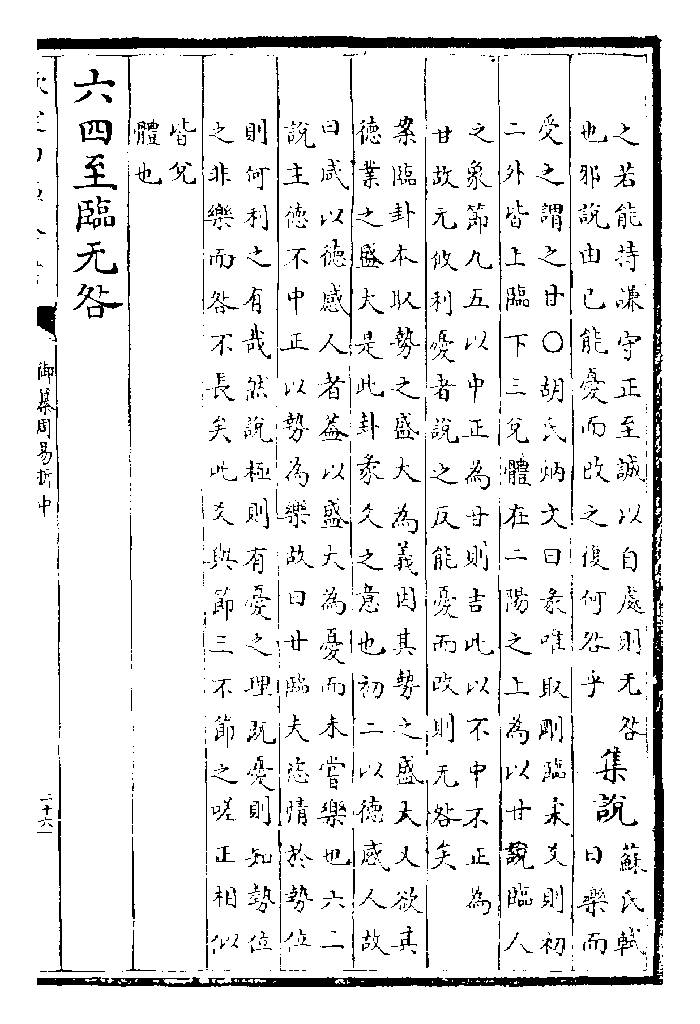 之若能持謙守正至誠以自處則无咎
也邪說由已能憂而改之復何咎乎
集說
蘇氏軾
曰樂而
受之謂之甘〇胡氏炳文曰彖唯取剛臨柔爻則初
二外皆上臨下三兌體在二陽之上為以甘說臨人
之象節九五以中正為甘則吉此以不中不正為
甘故无攸利憂者說之反能憂而改則无咎矣
案臨卦本取勢之盛大為義因其勢之盛大又欲其
德業之盛大是此卦彖爻之意也初二以德感人故
曰咸以德感人者蓋以盛大為憂而未嘗樂也六二
說主德不中正以勢為樂故曰甘臨夫恣情於勢位
則何利之有哉然說極則有憂之理既憂則知勢位
之非樂而咎不長矣此爻與節三不節之嗟正相似
皆兌
體也
六四至臨无咎
御纂周易折中
二十六